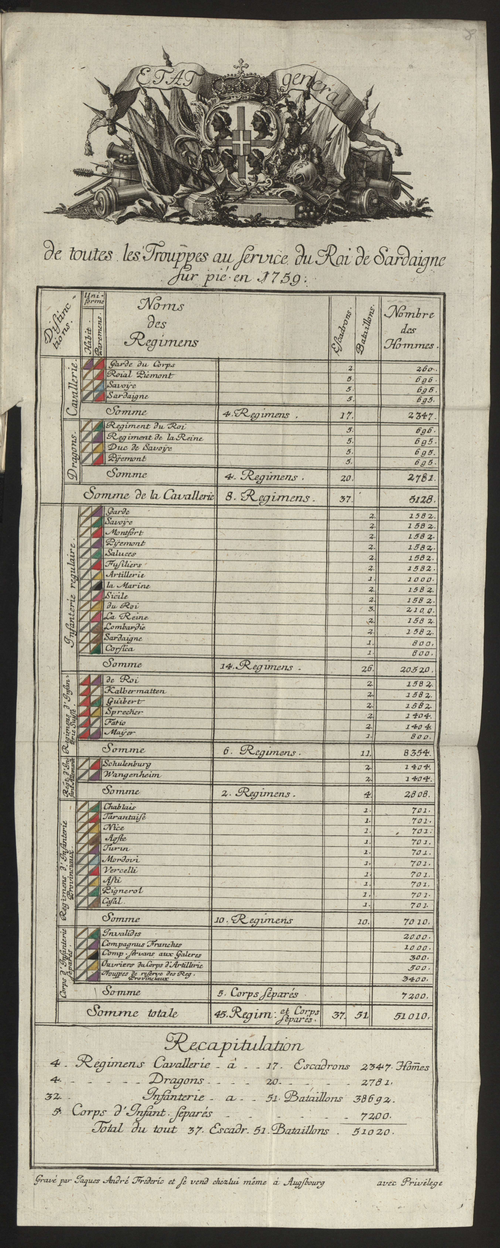 ETAT general
de toutes les Trouppes au service du Roi de Sardaigne
sur pié en 1759.
Distinctions. Uniforme Habit Paremens Noms des Regimens Escadrons. Bataillons. Nombre des Hommes.
Cavallerie.
Garde du Corps 2 260.
Roial Piemont 5. 696.
Savoye 5. 695.
Sardaigne 5. 695.
Somme 4. Regimens. 17. 2347.
Dragons.
Regiment du Roi 5. 696.
Regiment de la Reine 5. 695.
Duc de Savoye 5. 695.
Pyemont 5. 695.
Somme 4. Regimens. 20. 2781.
Somme de la Cavallerie 8. Regimens. 37. 5128.
Infanterie regulaire.
Garde 2. 1582.
Savoye 2. 1582.
Montfort 2. 1582.
Pyemont 2. 1582.
Saluces 2. 1582.
Fusiliers 2. 1582.
Artillerie 1. 1000.
la Marine 2. 1582.
Sicile 2. 1582.
du Roi 3. 2100.
La Reine 2. 1582.
Lombardie 2. 1582.
Sardaigne 1. 800.
Corsica 1. 800.
Somme 14. Regimens. 26. 20520.
Regimens d'Infanterie Suisse
de Roi 2. 1582
Kalbermatten 2. 1582.
Guibert 2. 1582
Sprecher 2. 1404.
Fatio 2. 1404.
Mayer 1. 800.
Somme 6. Regimens. 11. 8354.
Schulenburg 2. 1404.
Wangenheim 2. 1404.
Somme 2. Regimens. 4. 2808.
Regimens d'Infanterie Provinciaux
Chablais 1. 701.
Tarantaise 1. 701.
Nice 1. 701.
Aoste 1. 701.
Turin 1. 701.
Mondovi 1. 701.
Vercelli 1. 701.
Asti 1. 701.
Pignerol 1. 701.
Casal 1. 701.
Somme 10. Regimens 10. 7010.
Corps d'Infanterie separés
Invalides 2000.
Compagnus Franches 1000.
Comp. servans aux Galeres 300.
Ouvriers du Corps d'Artillerie 500.
Trouppes de reserve des Reg. Provinciaux 3400.
Somme 5. Corps separés 7200.
Somme totale 45. Regim. et Corps separés. 37. 51 51010.
Recapitulation
4. Regimens Cavallerie - à - - 17. Escadrons 2347 Hom̄es
4. - - - - - Dragons - - 20. - - - - 2781.
32. Infanterie - a - - 51. Bataillons 38692.
5. Corps d'Infant. separés - - - - - 7200.
Total du tout 37. Escadr. 51. Bataillons. 51020.
Gravé par Jaques André Fréderic et se vend chez lui même à Augsbourg avec Privilege